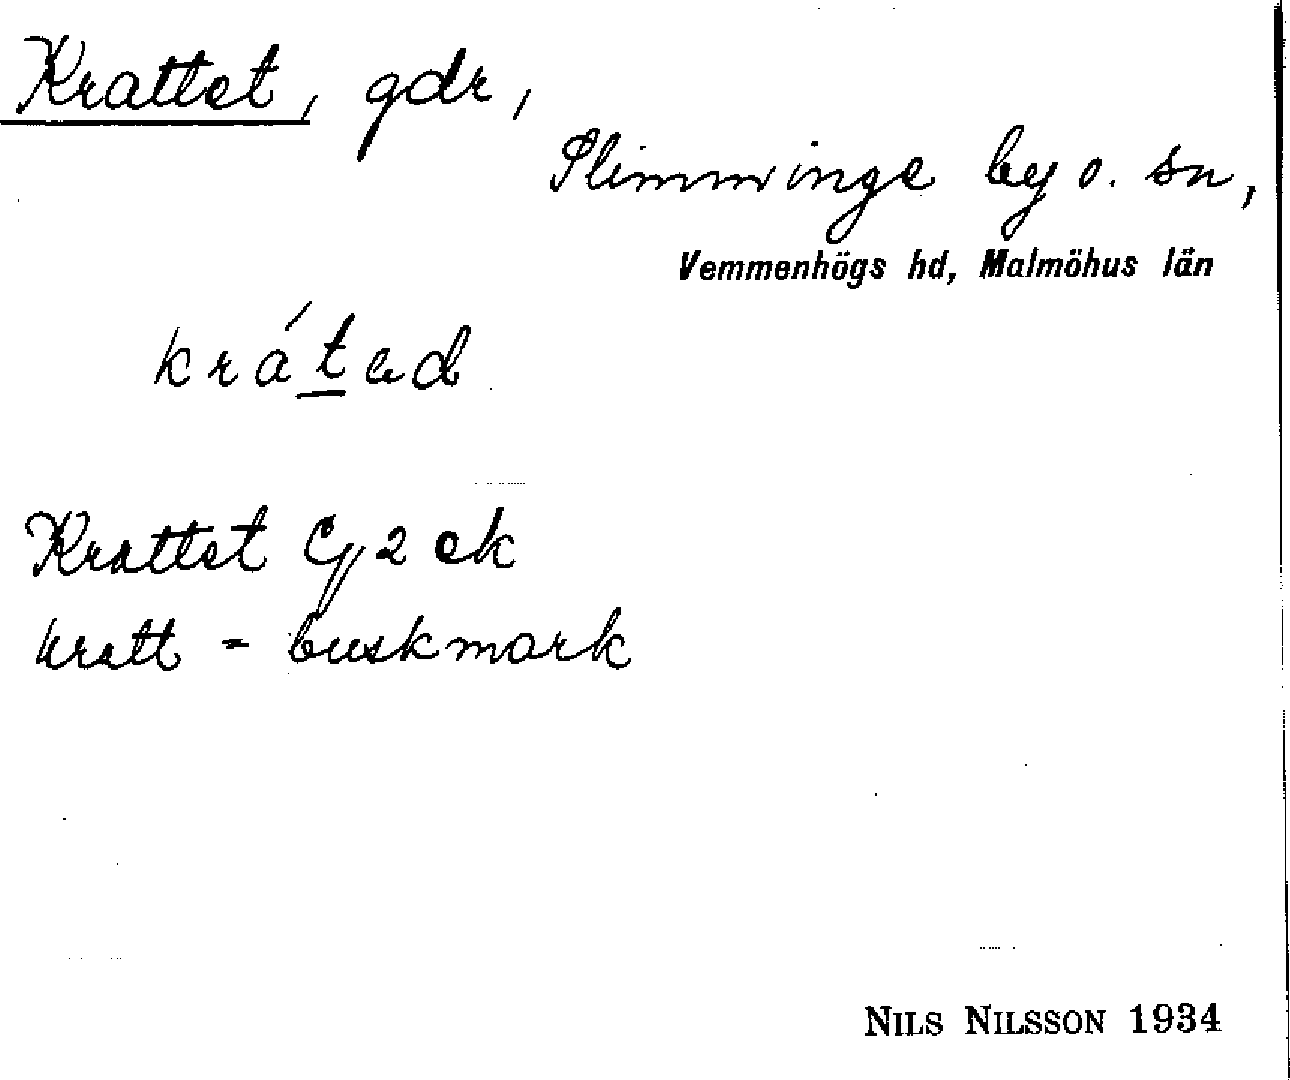 Krattet, gdr,
Slimminge by o. sn,
Vemmenhögs hd, Malmöhus län
Krattet 2 ek
kratt = buskmark
NILS NILSSON 1934